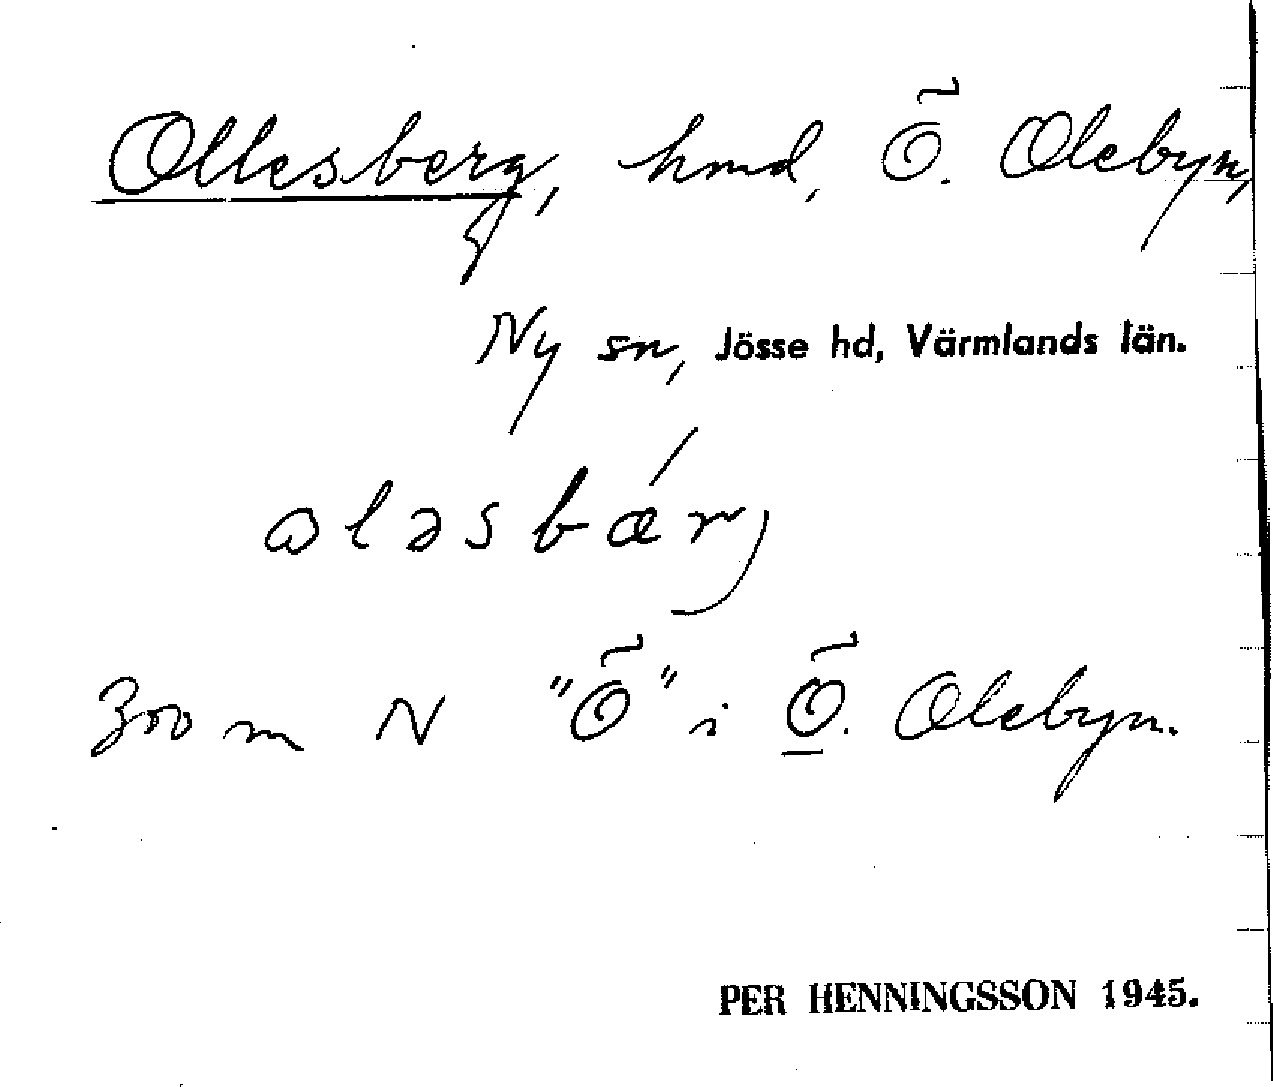 Ollesberg, hmd, Ö. Olebyn,
Ny sn, Jösse hd, Värmlands län.
ωləsbǽrj
300 m N "Ö" i Ö. Olebyn.
PER HENNINGSSON 1945.